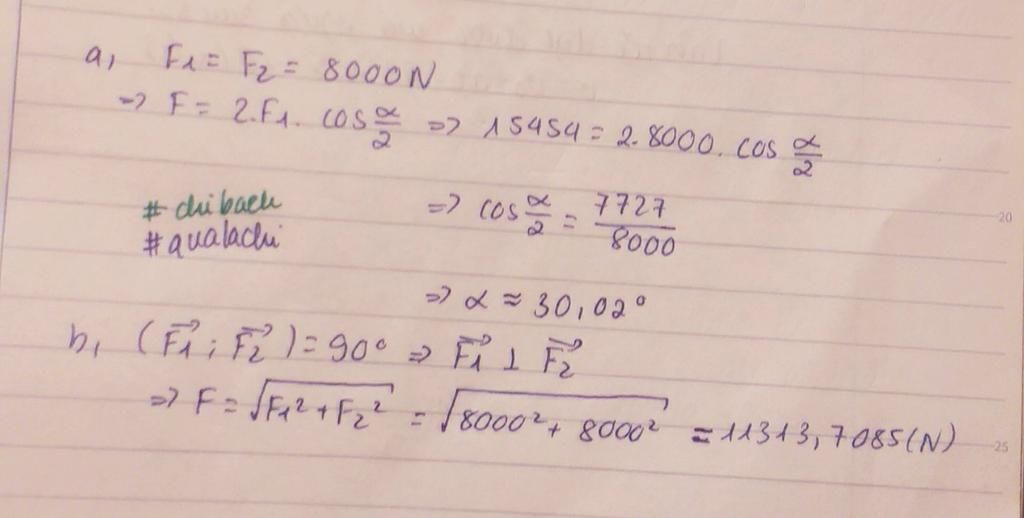 a, F1 = F2 = 8000N
=> F = 2.F1. cos α/2 => 15454 = 2.8000. cos α/2
# chibach => cos α/2 = 7727/8000
# qualachi
=> α ≈ 30,02°
b, (F1→ ; F2→) = 90° => F1→ ⊥ F2→
=> F = √(F1² + F2²) = √(8000² + 8000²) = 11313,7085(N)
20
25